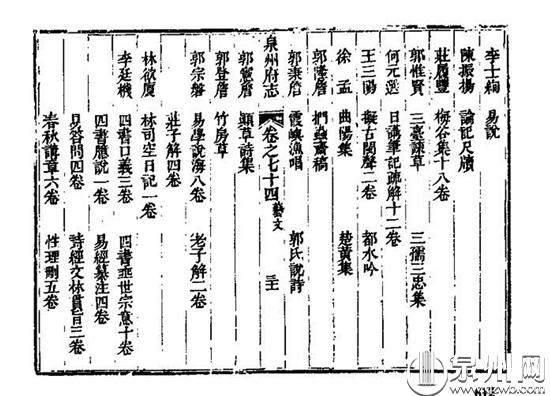 李士絢 易說
陳振揚 論記尺牘
莊履豐 梅谷集十八卷
郭惟賢 三臺疎草 三孺三忠集
何元選 日講筆記疏解十二卷
王三陽 擬古閩聲二卷 都水吟
徐孟 曲陽集 楚黃集
郭隆詹 捫蝨齋稿
郭秉詹 霞嶼漁唱 郭氏說詩
泉州府志 卷之七十四 藝文
郭憲詹 頴草詩集
郭登詹 竹房草
郭宗磐 易學說海八卷 老子解二卷
莊子解四卷
林欲厦 林司空日記一卷
李廷機 四書口義三卷 四書垂世宗意十卷
四書臆說一卷 易經纂注四卷
易答問四卷 詩經文林貫旨三卷
春秋講章六卷 性理刪五卷
泉州网